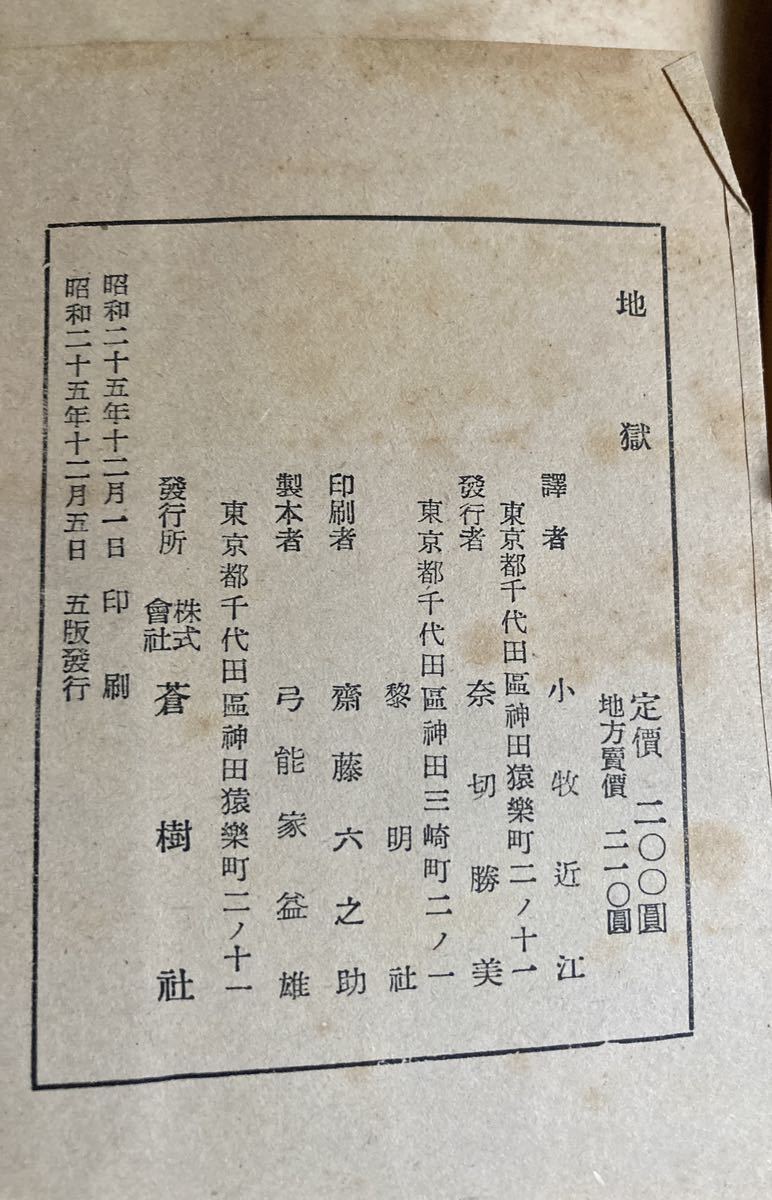 地獄
定價 二〇〇圓
地方賣價 二一〇圓
譯者 小牧近江
東京都千代田區神田猿樂町二ノ十一
發行者 奈切勝美
東京都千代田區神田三崎町二ノ一
黎明社
印刷者 齋藤六之助
製本者 弓能家益雄
東京都千代田區神田猿樂町二ノ十一
發行所 株式會社 蒼樹社
昭和二十五年十二月一日 印刷
昭和二十五年十二月五日 五版發行